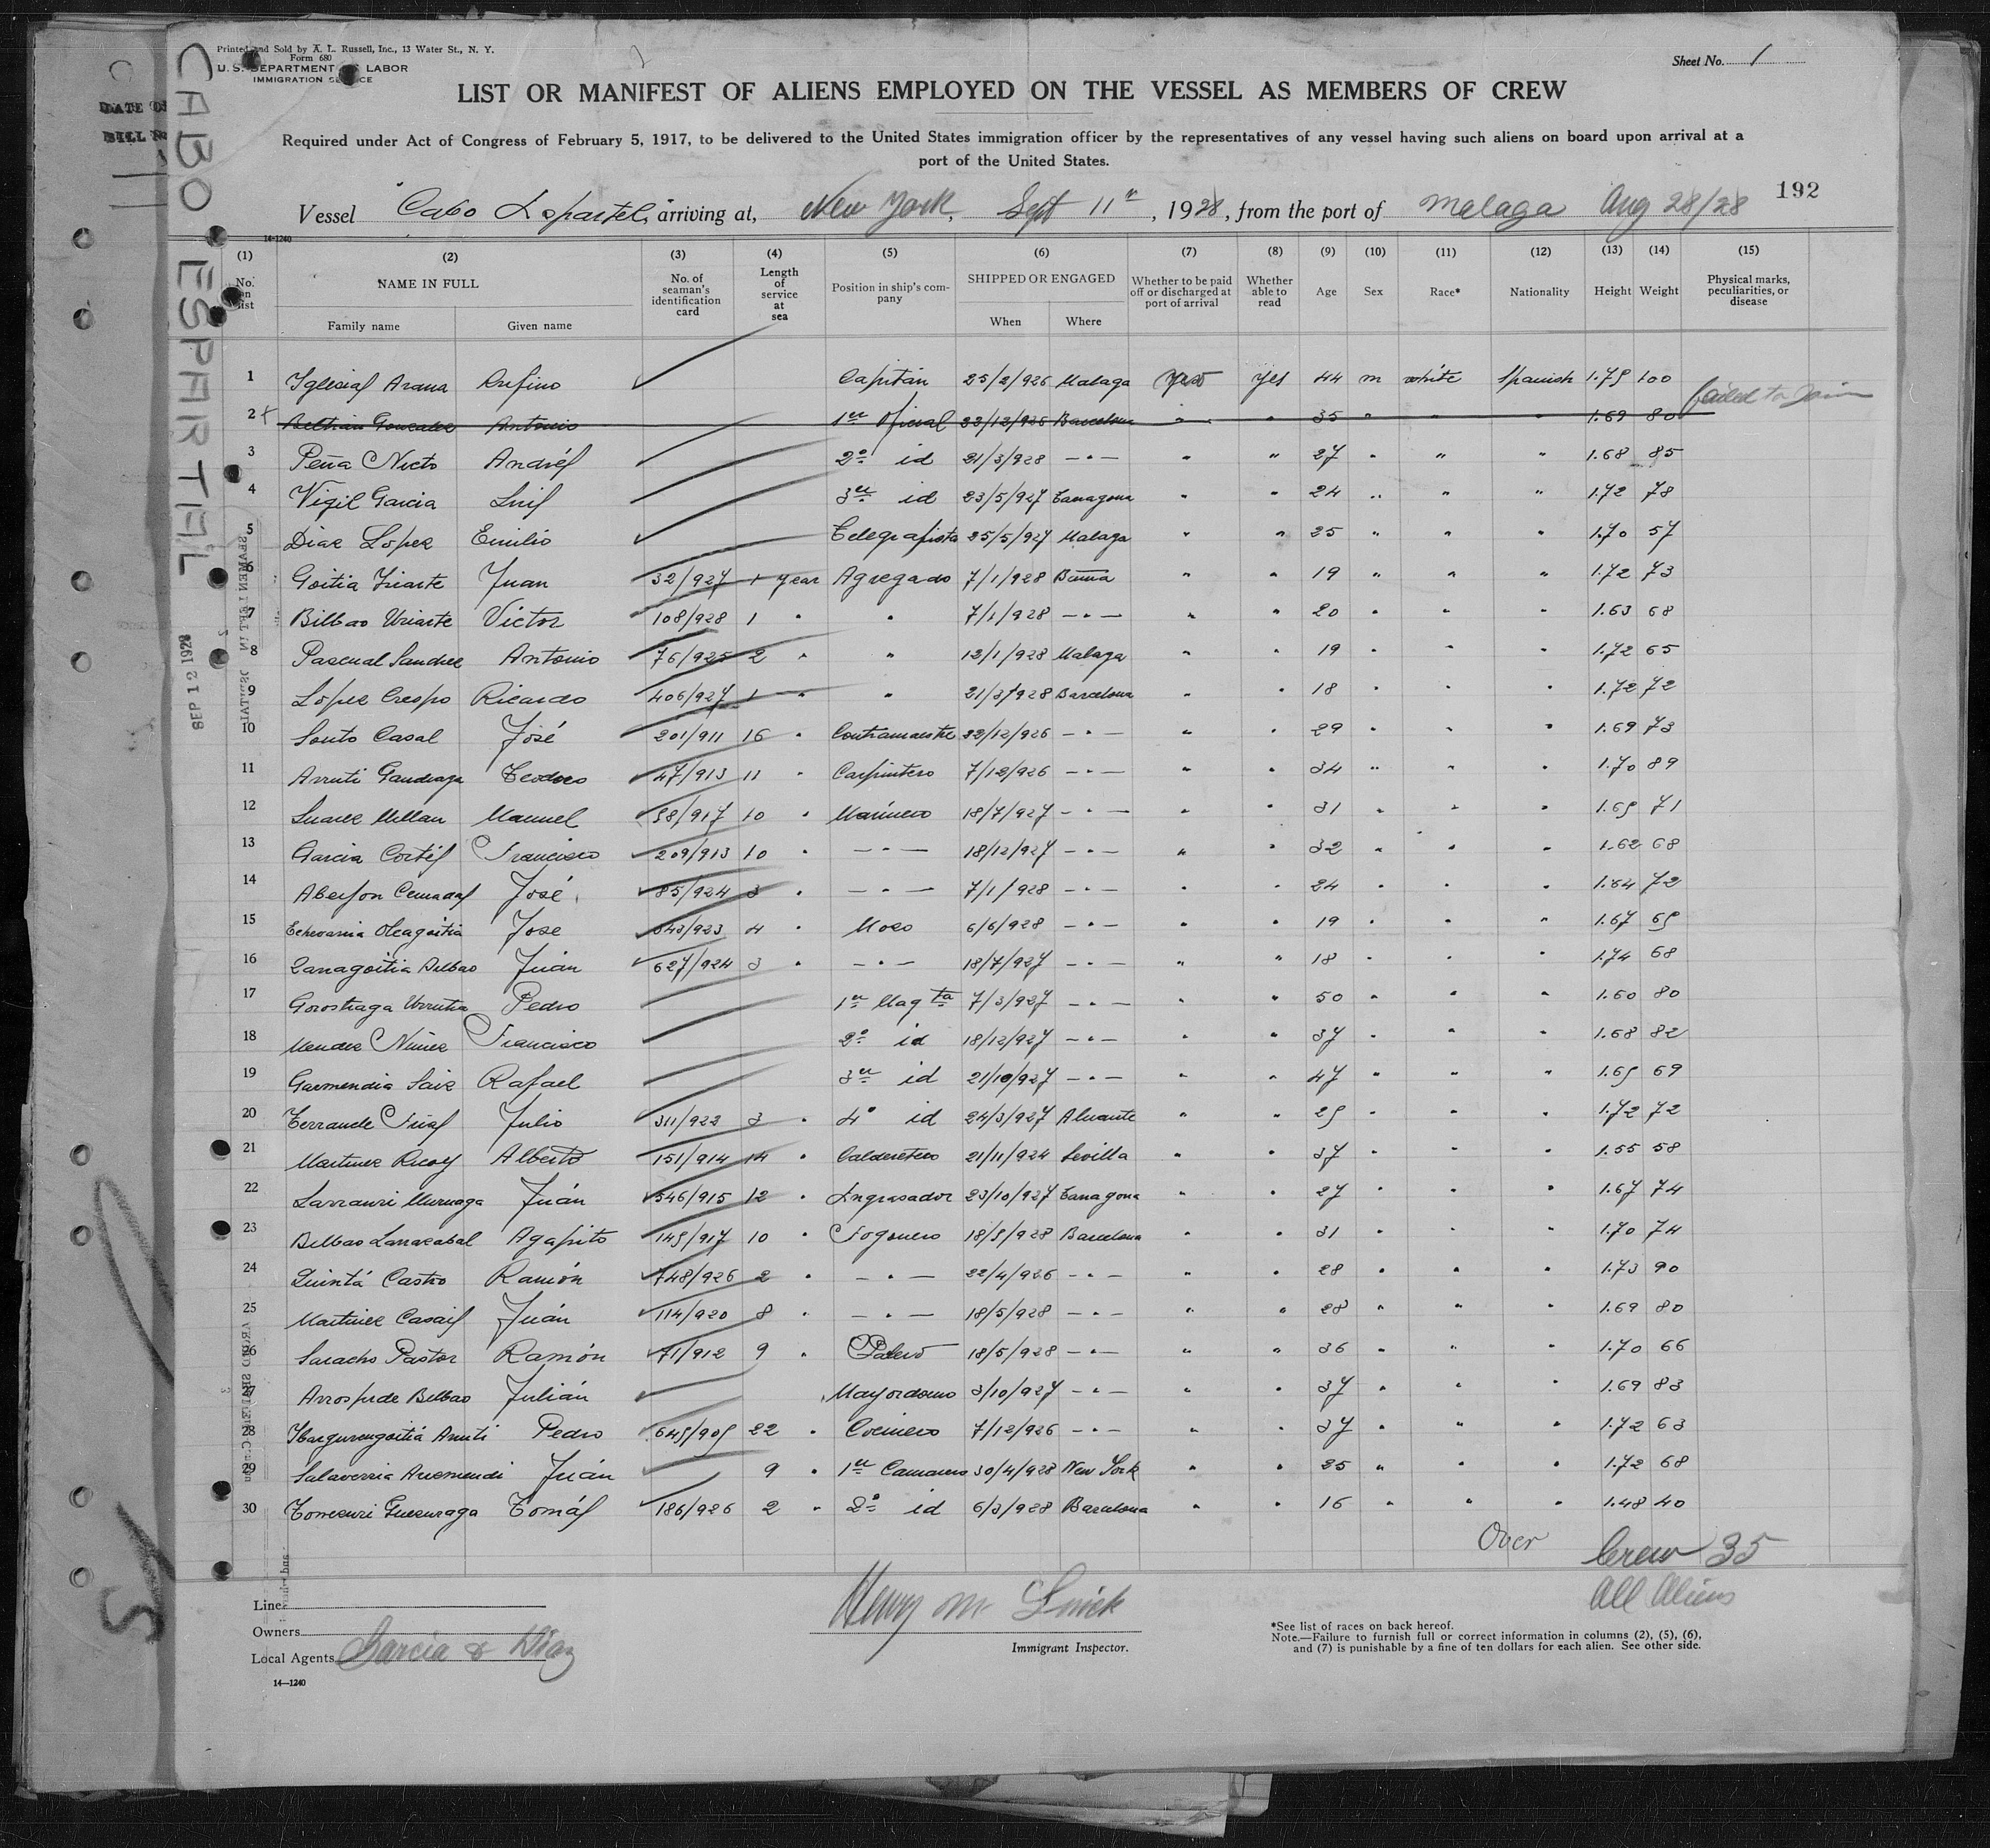 Printed and Sold by A. L. Russell, Inc., 13 Water St., N. Y.
Form 680
U. S. DEPARTMENT OF LABOR
IMMIGRATION SERVICE
Sheet No. 1
CABO ESPARTEL
LIST OR MANIFEST OF ALIENS EMPLOYED ON THE VESSEL AS MEMBERS OF CREW
Required under Act of Congress of February 5, 1917, to be delivered to the United States immigration officer by the representatives of any vessel having such aliens on board upon arrival at a
port of the United States.
192
Vessel "Cabo Espartel", arriving at, New York, Sept 11th, 1928, from the port of Malaga Aug 28/28
14-1240
(1) (2) (3) (4) (5) (6) (7) (8) (9) (10) (11) (12) (13) (14) (15)
No. on list NAME IN FULL Family name Given name No. of seaman's identification card Length of service at sea Position in ship's company SHIPPED OR ENGAGED When Where Whether to be paid off or discharged at port of arrival Whether able to read Age Sex Race* Nationality Height Weight Physical marks, peculiarities, or disease
1 Iglesias Arana Rufino Capitán 25/2/926 Malaga yes 44 m white Spanish 1.75 100
2 Beltrán Gonzalez Antonio 1er Oficial 22/12/926 Barcelona " " 35 " " " 1.69 80 failed to join
3 Peña Nieto Andrés 2º id 21/3/928 — " — " " 27 " " " 1.68 85
4 Vigil Garcia Luis 3er id 23/5/927 Tarragona " " 24 " " " 1.72 78
5 Diaz López Emilio Telegrafista 25/5/927 Malaga " " 25 " " " 1.70 57
6 Goitia Iriarte Juan 32/927 1 year Agregado 7/1/928 Bama " " 19 " " " 1.72 73
7 Bilbao Uriarte Victor 108/928 1 " " 7/1/928 — " — " " 20 " " " 1.63 68
8 Pascual Sanchez Antonio 76/925 2 " " 12/1/928 Malaga " " 19 " " " 1.72 65
9 López Crespo Ricardo 406/927 1 " " 21/3/928 Barcelona " " 18 " " " 1.72 72
10 Souto Casal José 201/911 16 " Contramaestre 22/12/926 — " — " " 29 " " " 1.69 73
11 Arruti Gandiaga Teodoro 47/913 11 " Carpintero 7/12/926 — " — " " 34 " " " 1.70 89
12 Suarez Millan Manuel 58/917 10 " Marinero 18/7/927 — " — " " 31 " " " 1.65 71
13 Garcia Cortés Francisco 209/913 10 " — " — 18/12/927 — " — " " 32 " " " 1.62 68
14 José 85/924 3 " — " — 7/1/928 — " — " " 24 " " " 1.64 72
15 Echevarria Oleagoitia Jose 643/923 4 " Mozo 6/6/928 — " — " " 19 " " " 1.67 65
16 Zarragoitia Bilbao Juán 627/924 3 " — " — 18/7/927 — " — " " 18 " " " 1.74 68
17 Gorostiaga Urrutia Pedro 1er Maqta 7/3/927 — " — " " 50 " " " 1.60 80
18 Mendez Nuñez Francisco 2º id 18/12/927 — " — " " 37 " " " 1.68 82
19 Garmendia Saiz Rafael 3er id 21/10/927 — " — " " 47 " " " 1.65 69
20 Julio 311/922 3 " 4º id 24/3/927 Alicante " " 25 " " " 1.72 72
21 Martinez Ricoy Alberto 151/914 14 " Calderetero 21/11/924 Sevilla " " 37 " " " 1.55 58
22 Larrauri Muruaga Juán 546/915 12 " Engrasador 23/10/927 Tarragona " " 27 " " " 1.67 74
23 Bilbao Larrazabal Agapito 145/917 10 " Fogonero 18/5/928 Barcelona " " 31 " " " 1.70 74
24 Quintá Castro Ramón 748/926 2 " — " — 22/4/926 — " — " " 28 " " " 1.73 90
25 Martinez Casais Juán 114/920 8 " — " — 18/5/928 — " — " " 28 " " " 1.69 80
26 Saracho Pastor Ramón 71/912 9 " Palero 18/5/928 — " — " " 36 " " " 1.70 66
27 Arrospide Bilbao Julián Mayordomo 3/10/927 — " — " " 37 " " " 1.69 83
28 Ibargurengoitia Arruti Pedro 645/905 22 " Cocinero 7/12/926 — " — " " 37 " " " 1.72 63
29 Salaverria Arismendi Juán 9 " 1er Camarero 30/4/928 New York " " 25 " " " 1.72 68
30 Tomás 186/926 2 " 2º id 6/3/928 Barcelona " " 16 " " " 1.48 40
Over Crew 35
All Aliens
SEP 12 1928
Line
Owners
Local Agents Garcia & Diaz
14—1240
Henry M
Immigrant Inspector.
*See list of races on back hereof.
Note.—Failure to furnish full or correct information in columns (2), (5), (6),
and (7) is punishable by a fine of ten dollars for each alien. See other side.